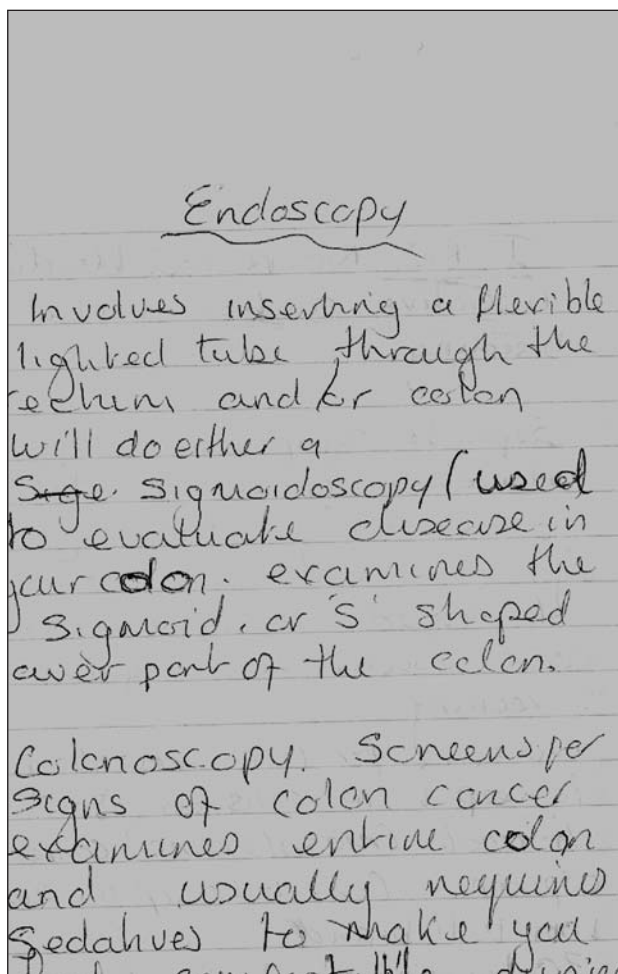 Endoscopy
Involves inserting a flexible
lighted tube, through the
rectum and/or colon
will do either a
Sige. Sigmoidoscopy (used
to evaluate disease in
your colon. examines the
Sigmoid. or 'S' shaped
lower part of the colon.
Colonoscopy. Screens for
signs of colon cancer
examines entire colon
and usually requires
Sedatives to make you